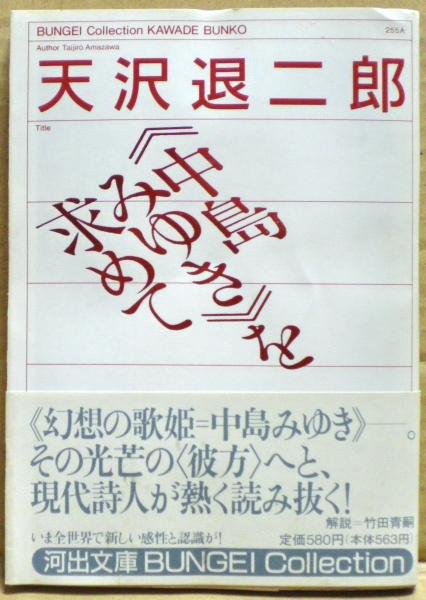 BUNGEI Collection KAWADE BUNKO
255A
Author Taijirō Amazawa
天沢退二郎
Title
《中島
みゆき》を
求めて
《幻想の歌姫=中島みゆき》――。
その光芒の〈彼方〉へと、
現代詩人が熱く読み抜く!
解説=竹田青嗣
いま全世界で新しい感性と認識が!
定価580円(本体563円)
河出文庫 BUNGEI Collection